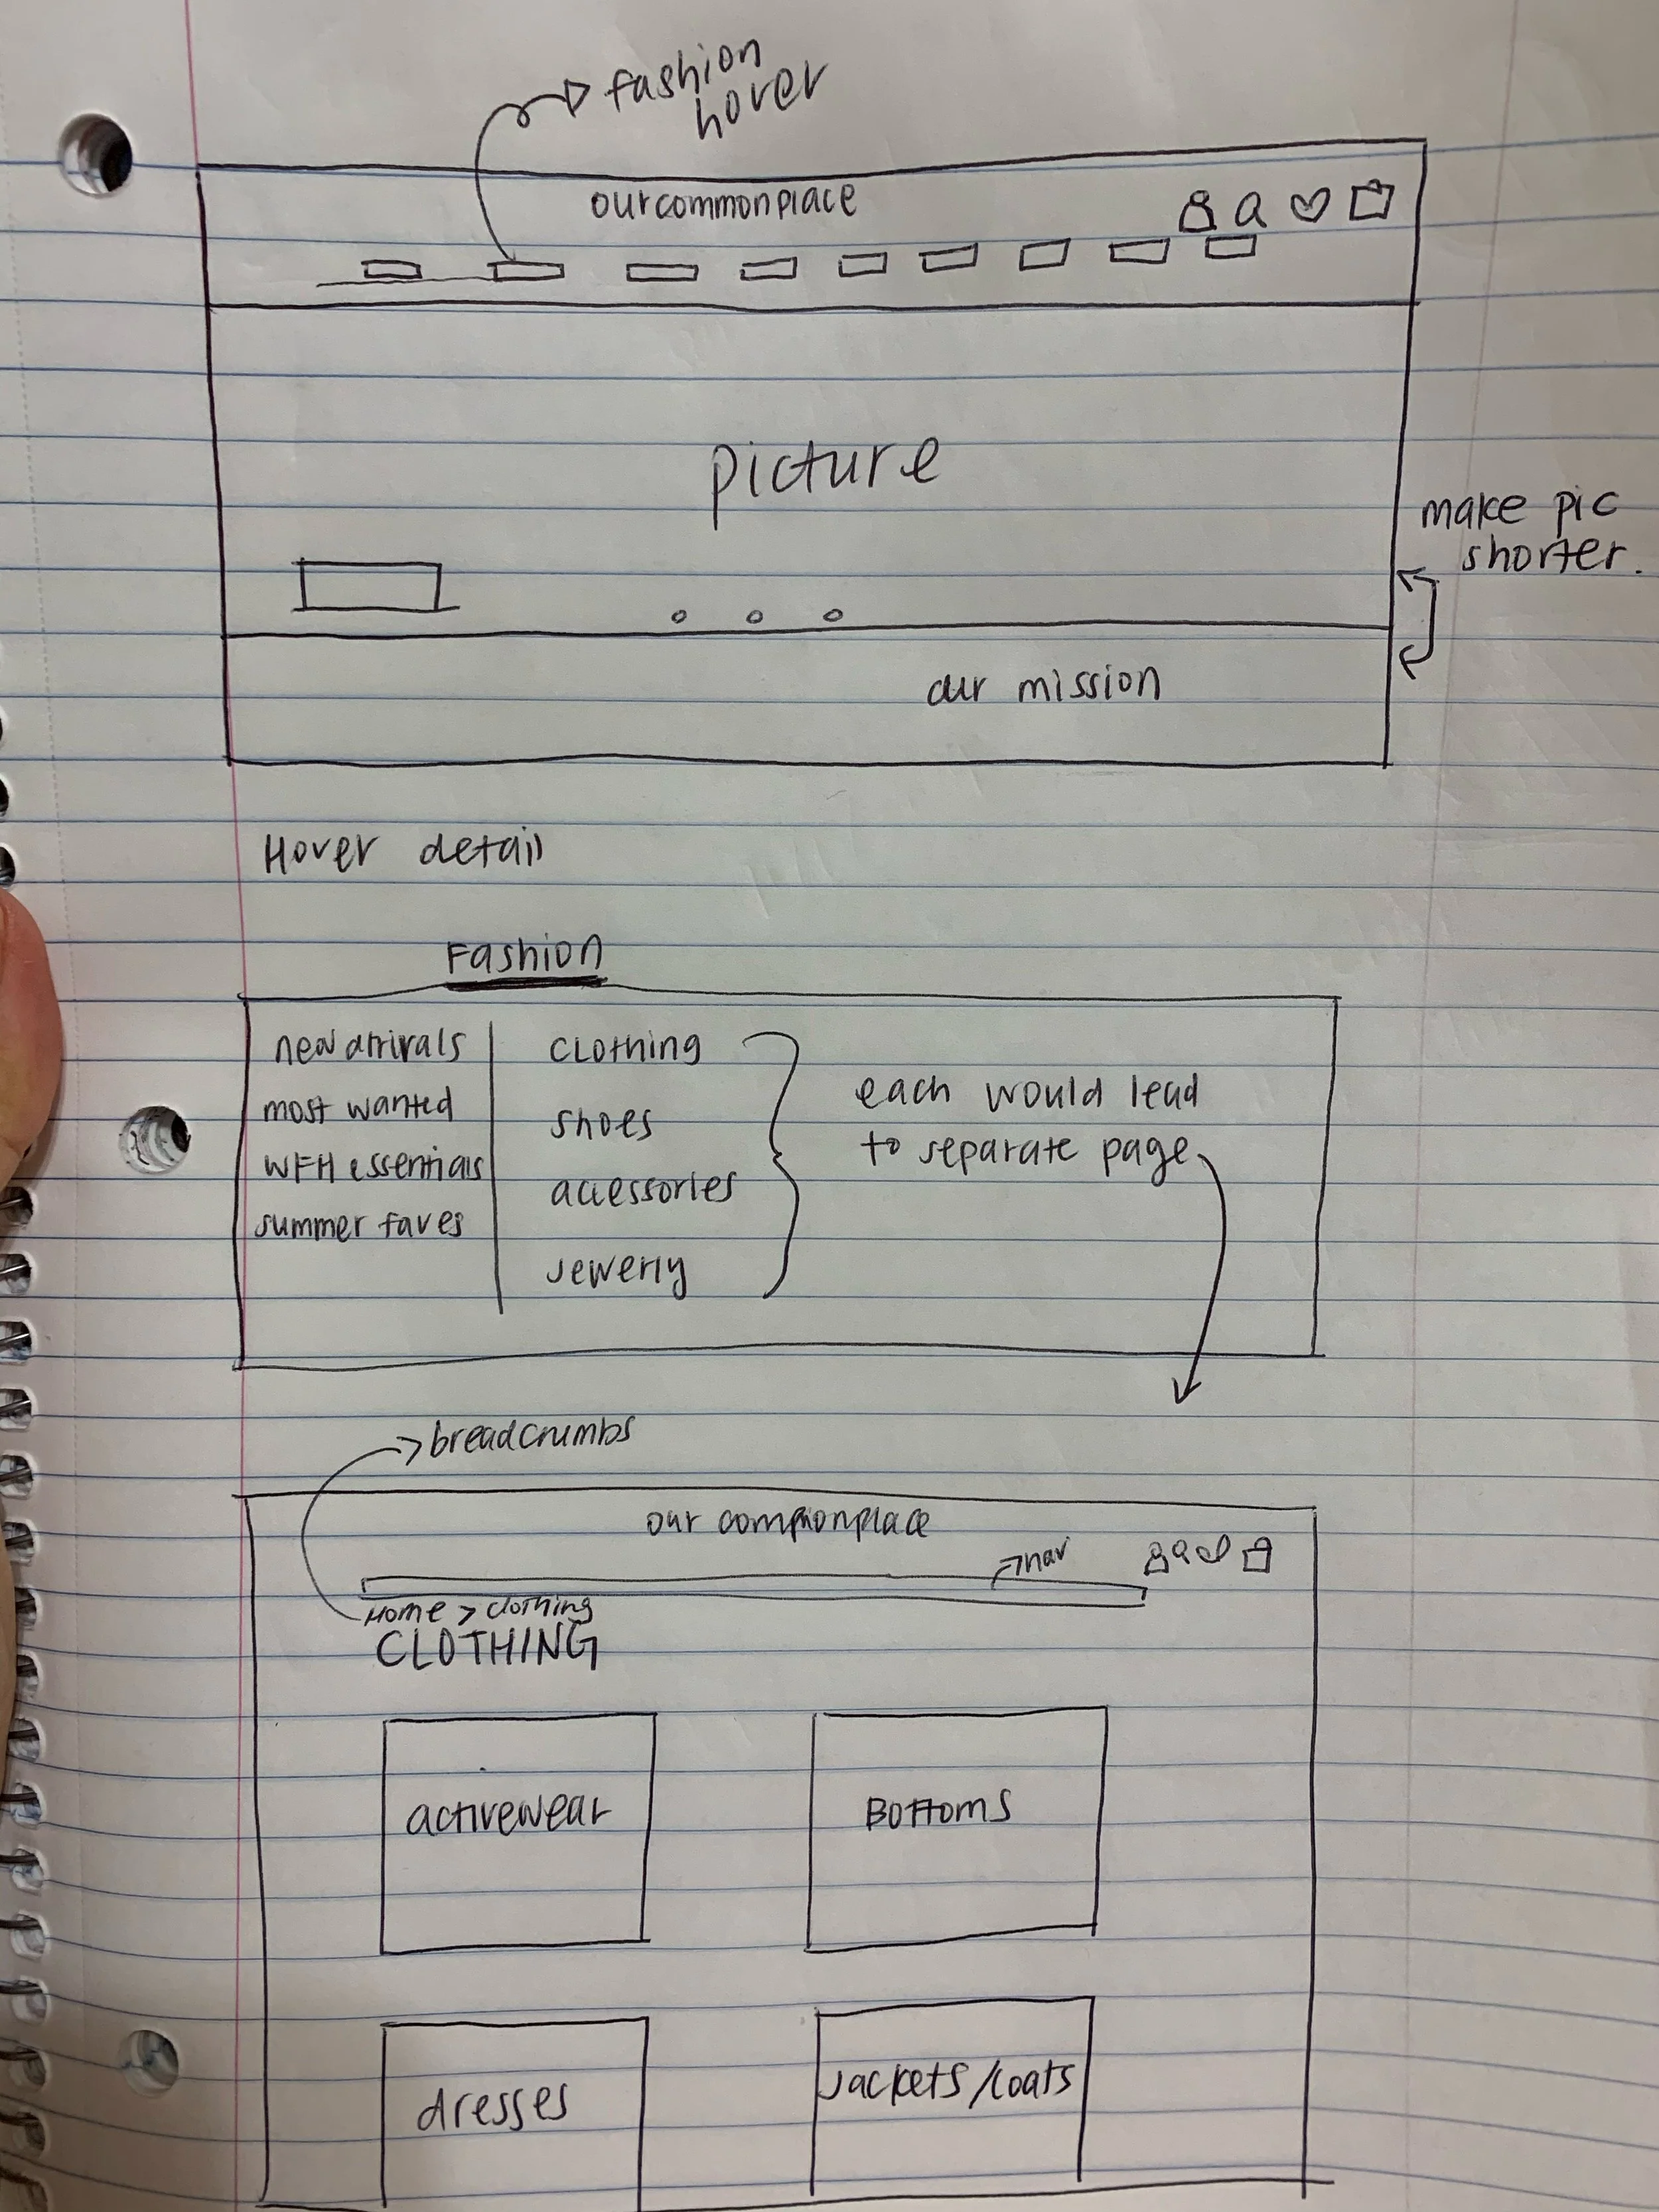 fashion
hover
ourcommonplace
picture
make pic
shorter.
our mission
Hover detail
Fashion
new arrivals
most wanted
WFH essentials
summer faves
clothing
shoes
accessories
jewerly
each would lead
to separate page
breadcrumbs
our commonplace
nav
Home > clothing
CLOTHING
activewear
Bottoms
dresses
Jackets/coats